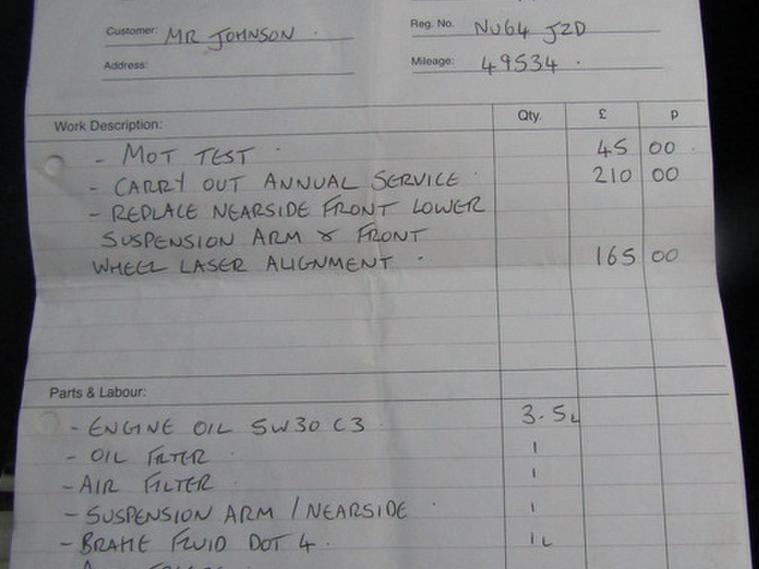 Customer: MR JOHNSON Reg. No. NU64 JZD
Address: Mileage: 49534
Work Description: Qty. £ p
- MOT TEST 45 00
- CARRY OUT ANNUAL SERVICE 210 00
- REPLACE NEARSIDE FRONT LOWER
SUSPENSION ARM & FRONT
WHEEL LASER ALIGNMENT 165 00
Parts & Labour:
- ENGINE OIL 5W30 C3 3.5L
- OIL FILTER 1
- AIR FILTER 1
- SUSPENSION ARM / NEARSIDE 1
- BRAKE FLUID DOT 4 1L